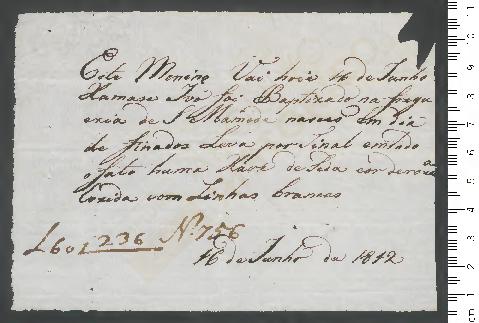 Este Menino Vai hoie 16 de Junho
Xamase Jve foi Baptizado na fregu
ezia de S Mamede nasceu em dia
de finados Leva por sinal em todo
o fato huma Xave de Seda cor de roza
cozida com Linhas brancas
L 601 236 Nº 756
16 de Junho de 1812